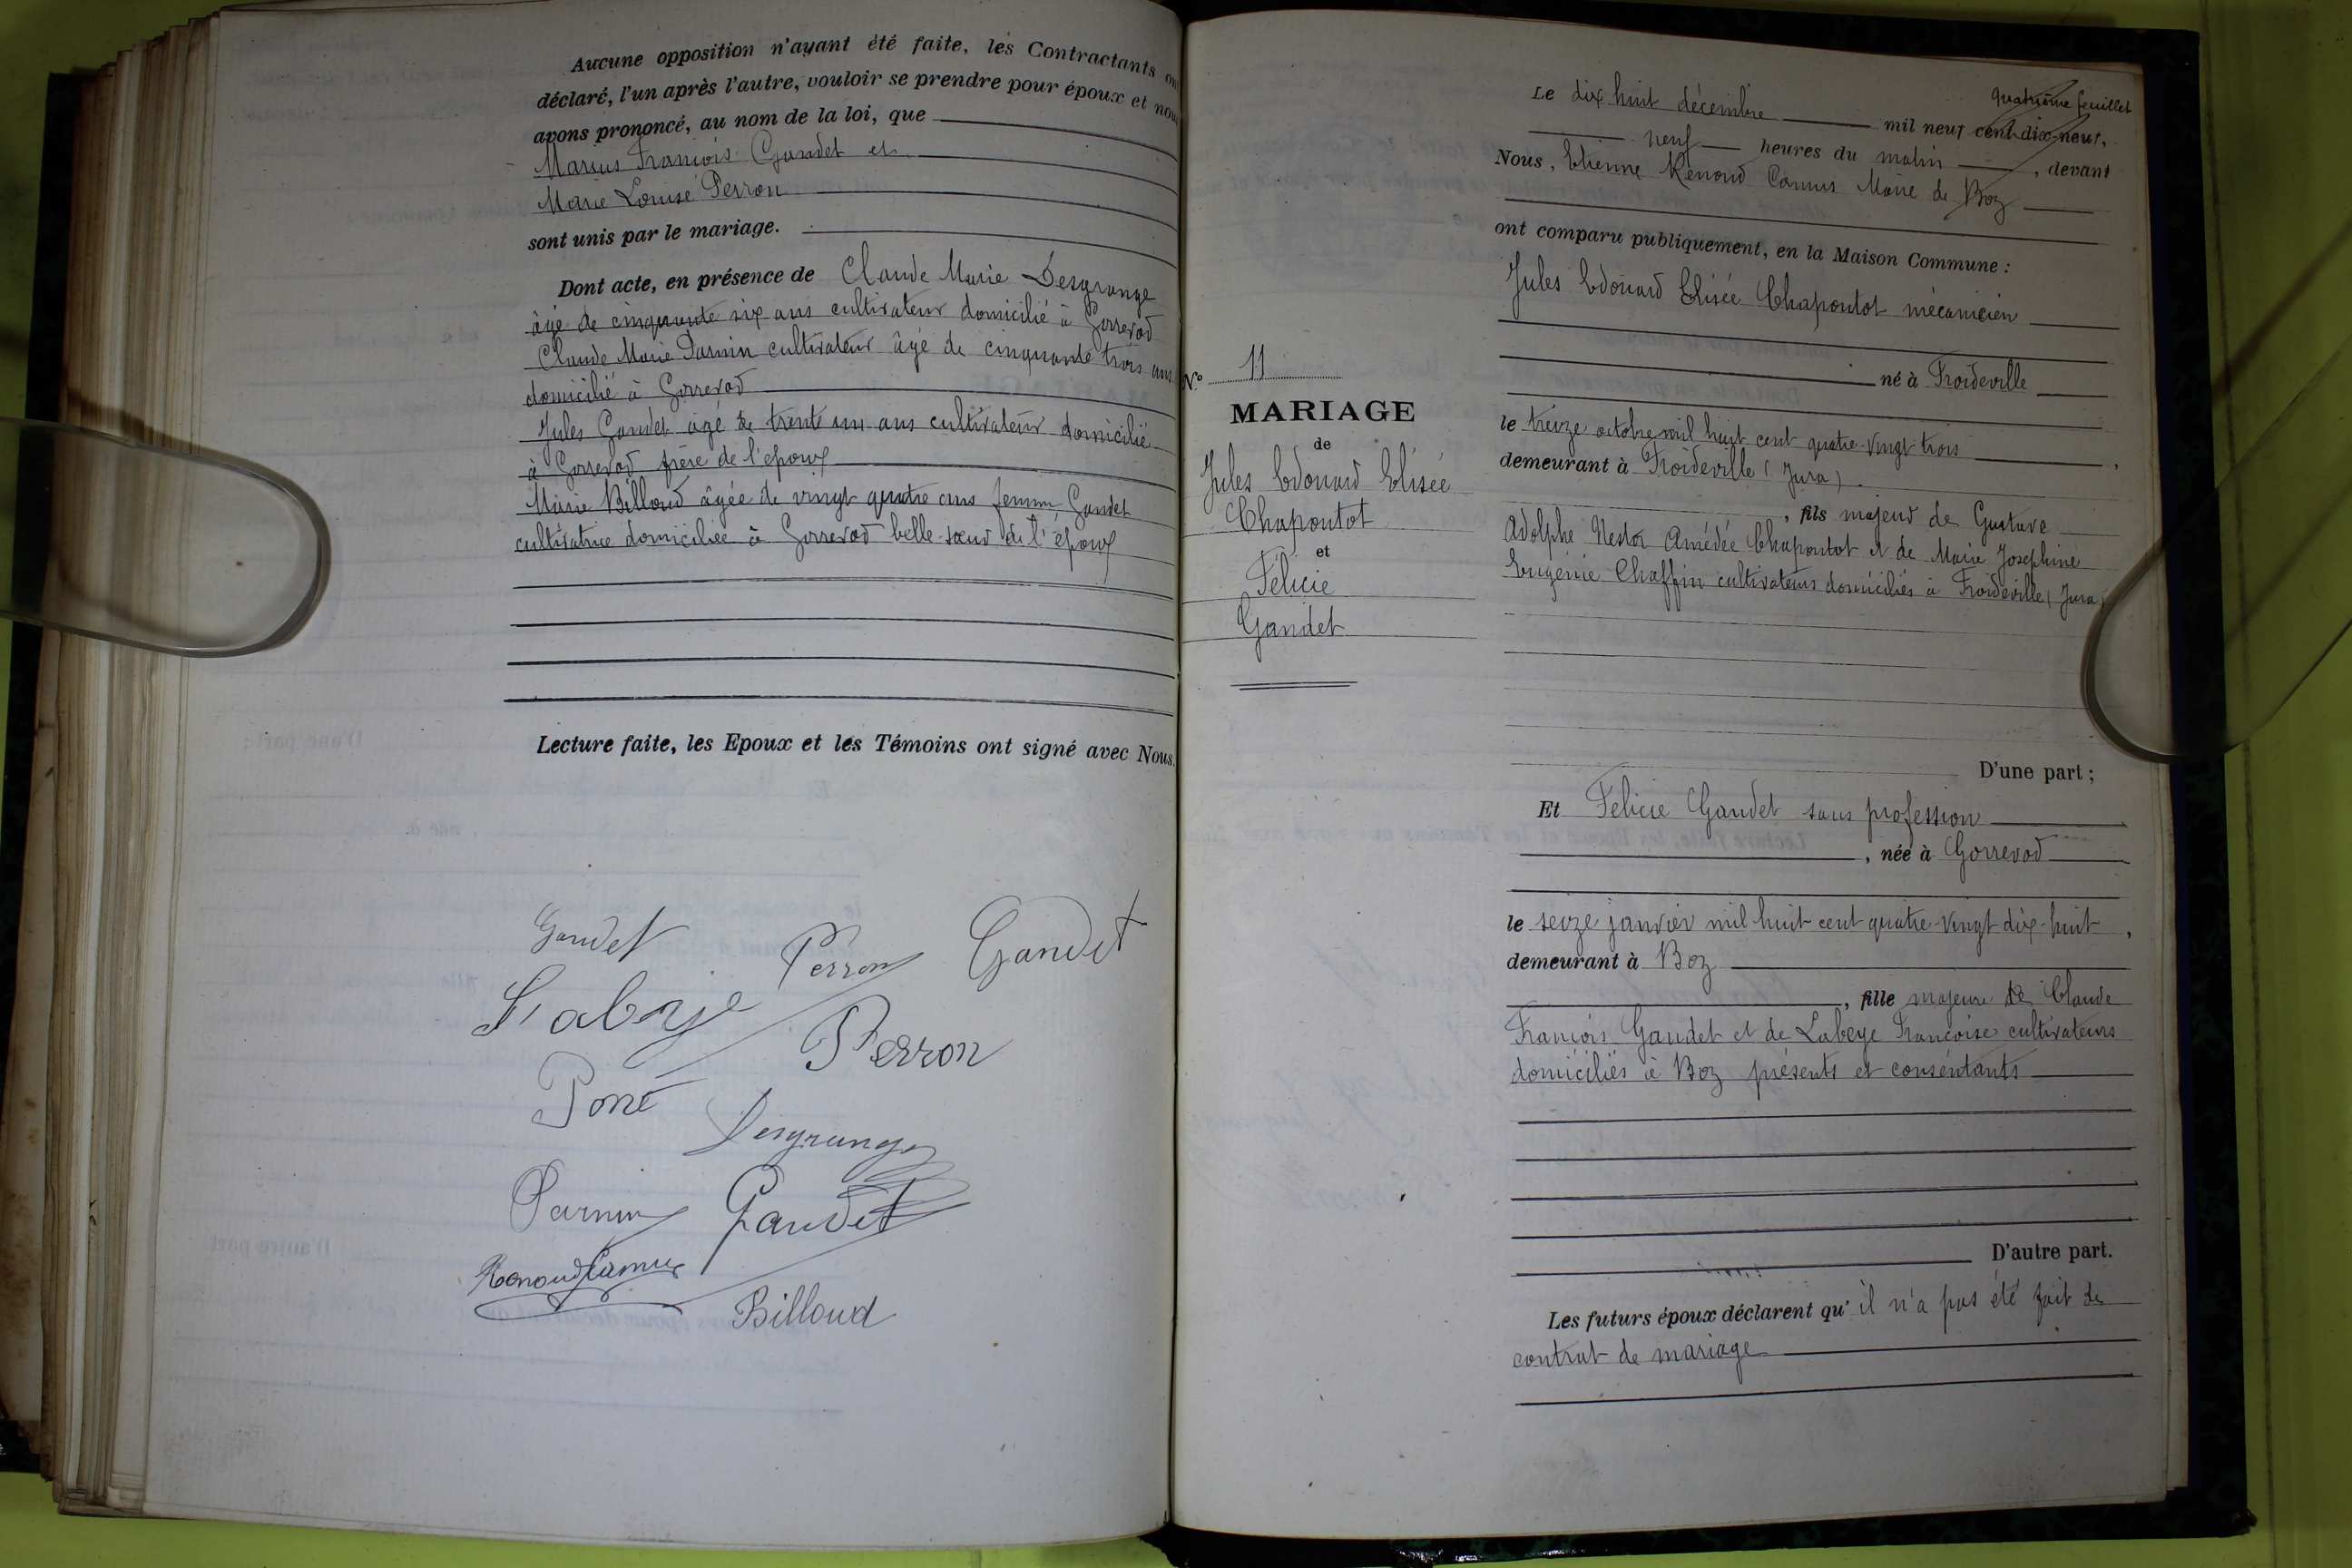 Aucune opposition n'ayant été faite, les Contractants on
déclaré, l'un après l'autre, vouloir se prendre pour époux et nous
avons prononcé, au nom de la loi, que
Marius François Gandet et
Marie Louise Perron
sont unis par le mariage.
Dont acte, en présence de Claude Marie Desgrange
âgé de cinquante six ans cultivateur domicilié à Gorrevod
Claude Marie Parnin cultivateur âgé de cinquante trois ans
domicilié à Gorrevod
Jules Gandet agé de trente un ans cultivateur domicilié
à Gorrevod frère de l'époux
Marie Billoud âgée de vingt quatre ans femme Gandet
cultivatrice domiciliée à Gorrevod belle-sœur de l'époux
Lecture faite, les Epoux et les Témoins ont signé avec Nous.
Gandet
Perron
Gandet
Labeye
Perron
Poné
Desgranges
Parnin
Gandet
Renoud Camus
Billoud
quatrième feuillet
Le dix huit décembre mil neuf cent dix-neuf,
neuf heures du matin, devant
Nous, Etienne Renoud Camus Maire de Boz
ont comparu publiquement, en la Maison Commune :
Jules Edouard Elisée Chapontot mécanicien
né à Froideville
le treize octobre mil huit cent quatre-vingt-trois,
demeurant à Froideville (Jura)
, fils majeur de Gustave
Adolphe Nestor Amédée Chapontot et de Marie Josephine
Eugénie Chaffin cultivateurs domiciliés à Froideville (Jura)
N° 11
MARIAGE
de
Jules Edouard Elisée
Chapontot
et
Félicie
Gandet
D'une part ;
Et Felicie Gandet sans profession
, née à Gorrevod
le seize janvier mil huit cent quatre-vingt-dix-huit,
demeurant à Boz
, fille majeure de Claude
François Gandet et de Labeye Françoise cultivateurs
domiciliés à Boz présents et consentants
D'autre part.
Les futurs époux déclarent qu'il n'a pas été fait de
contrat de mariage